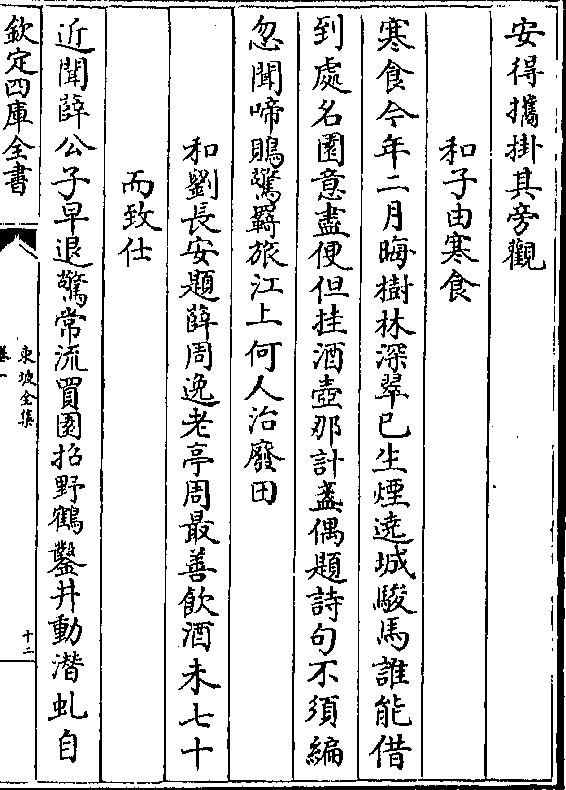 安得攜掛其旁觀
和子由寒食
寒食今年二月晦樹林深翠已生煙遶城駿馬誰能借
到處名園意盡便但挂酒壺那計盞偶題詩句不須編
忽聞啼鵙驚羇旅江上何人治廢田
和劉長安題薛周逸老亭周最善飲酒未七十
而致仕
近聞薛公子早退驚常流買園招野鶴鑿井動潛虬自
欽定四庫全書
東坡全集
卷一
十二